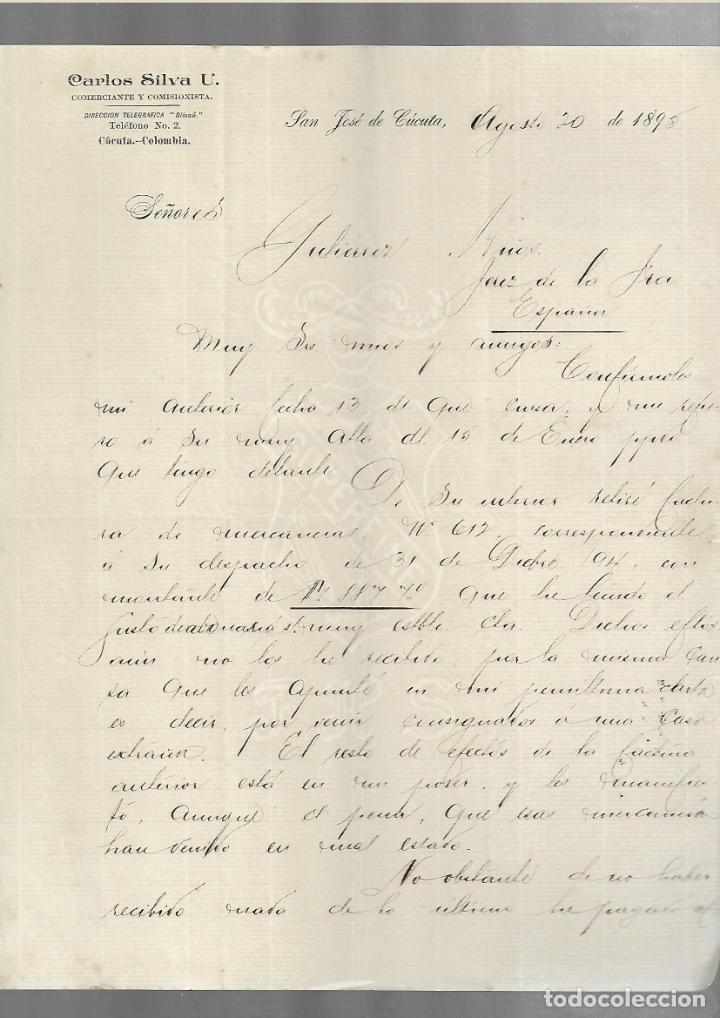 Carlos Silva U.
COMERCIANTE Y COMISIONISTA.
DIRECCION TELEGRAFICA "Silvaú."
Teléfono No. 2.
Cúcuta.--Colombia.
San José de Cúcuta, Agosto 20 de 1895
Señores
Gutiérrez Hnos.
Jerez de la Fra
España
Muy Srs mios y amigos:
Confirmoles
mi anterior fecha 13 del que cursa, y me refie
ro á su muy atta del 15 de Enero ppdo
que tengo delante
De su interior retiré factu
ra de mercancias, Nº 612, correspondiente
á su despacho de 31 de Dicbre 94, con
montante de que he tenido el
gusto de su muy estble Cta. Dichos eftos
aún no los he recibido, por la misma cau
sa que les apunté en mi penúltima carta
es decir, por venir consignados á una Casa
extraña. El resto de efectos de la factura
anterior está en mi poder, y les manifies
to, aunque el pena, que esas mercancias
han venido en mal estado.
No obstante de no haber
recibido nada de lo último he pagado